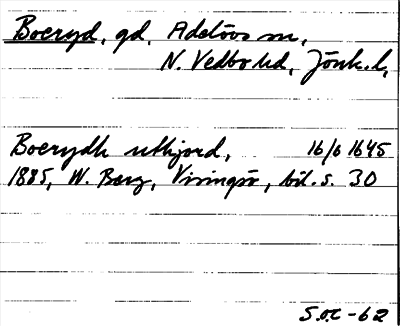 Boeryd, gd, Adelövs sn,
N. Vedbo hd, Jönk. l,
Boerydh utkjord, 16/6 1645
1885, W. Berg, Visingsö, bil. s. 30
S.O.C-62